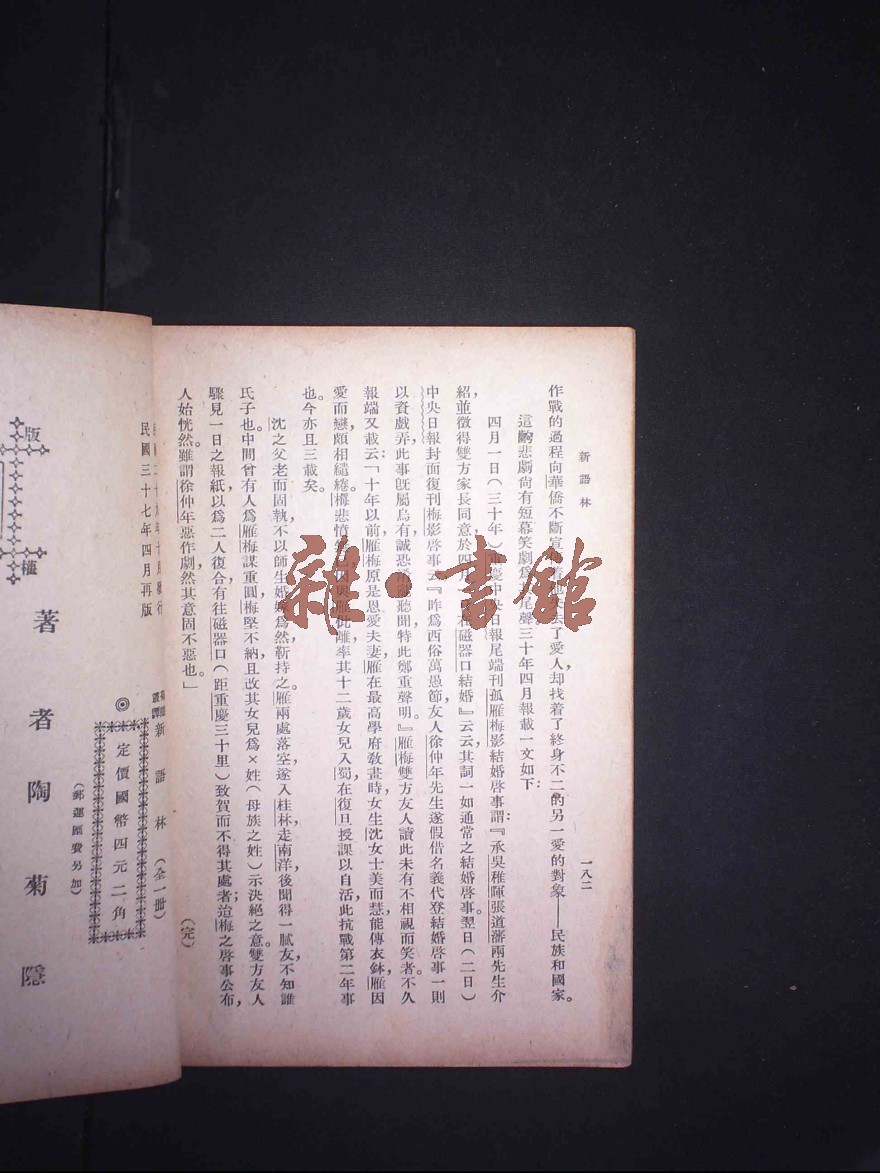 新語林
一八二
作戰的過程向華僑不斷宣失去了愛人,却找着了終身不二的另一愛的對象——民族和國家。
這齣悲劇尙有短幕笑劇爲尾聲三十年四月報載一文如下:
四月一日(三十年)重慶中央日報尾端刊孤雁梅影結婚啓事謂:『承吳稚暉張道藩兩先生介
紹,並徵得雙方家長同意於四月在磁器口結婚』云云其詞一如通常之結婚啓事。翌日(二日)
中央日報封面復刊梅影啓事云:『昨爲西俗萬愚節,友人徐仲年先生遂假借名義代登結婚啓事一則
以資戲弄。此事旣屬烏有誠恐淆亂聽聞特此鄭重聲明。』雁梅雙方友人讀此未有不相視而笑者不久
報端又載云:「十年以前,雁梅原是恩愛夫妻,雁在最高學府敎畫時,女生沈女士美而慧,能傳衣鉢,雁因
愛而戀,頗相繾綣,梅悲憤因與雁仳離率其十二歲女兒入蜀,在復旦授課以自活,此抗戰第二年事
也。今亦且三載矣。
沈之父老而固執,不以師生婚嫁爲然,靳持之。雁兩處落空,遂入桂林,走南洋,後聞得一膩友,不知誰
氏子也。中間曾有人爲雁梅謀重圓,梅堅不納,且改其女兒爲×姓(母族之姓)示決絕之意。雙方友人
驟見一日之報紙,以爲二人復合,有往磁器口(距重慶三十里)致賀而不得其處者;迨梅之啓事公布,
人始恍然。雖謂徐仲年惡作劇,然其意固不惡也。」
(完)
民國三十七年四月再版
新語林(全一冊)
◎定價國幣四元二角
(郵運匯費另加)
版權
著者陶菊隱
雜·書館